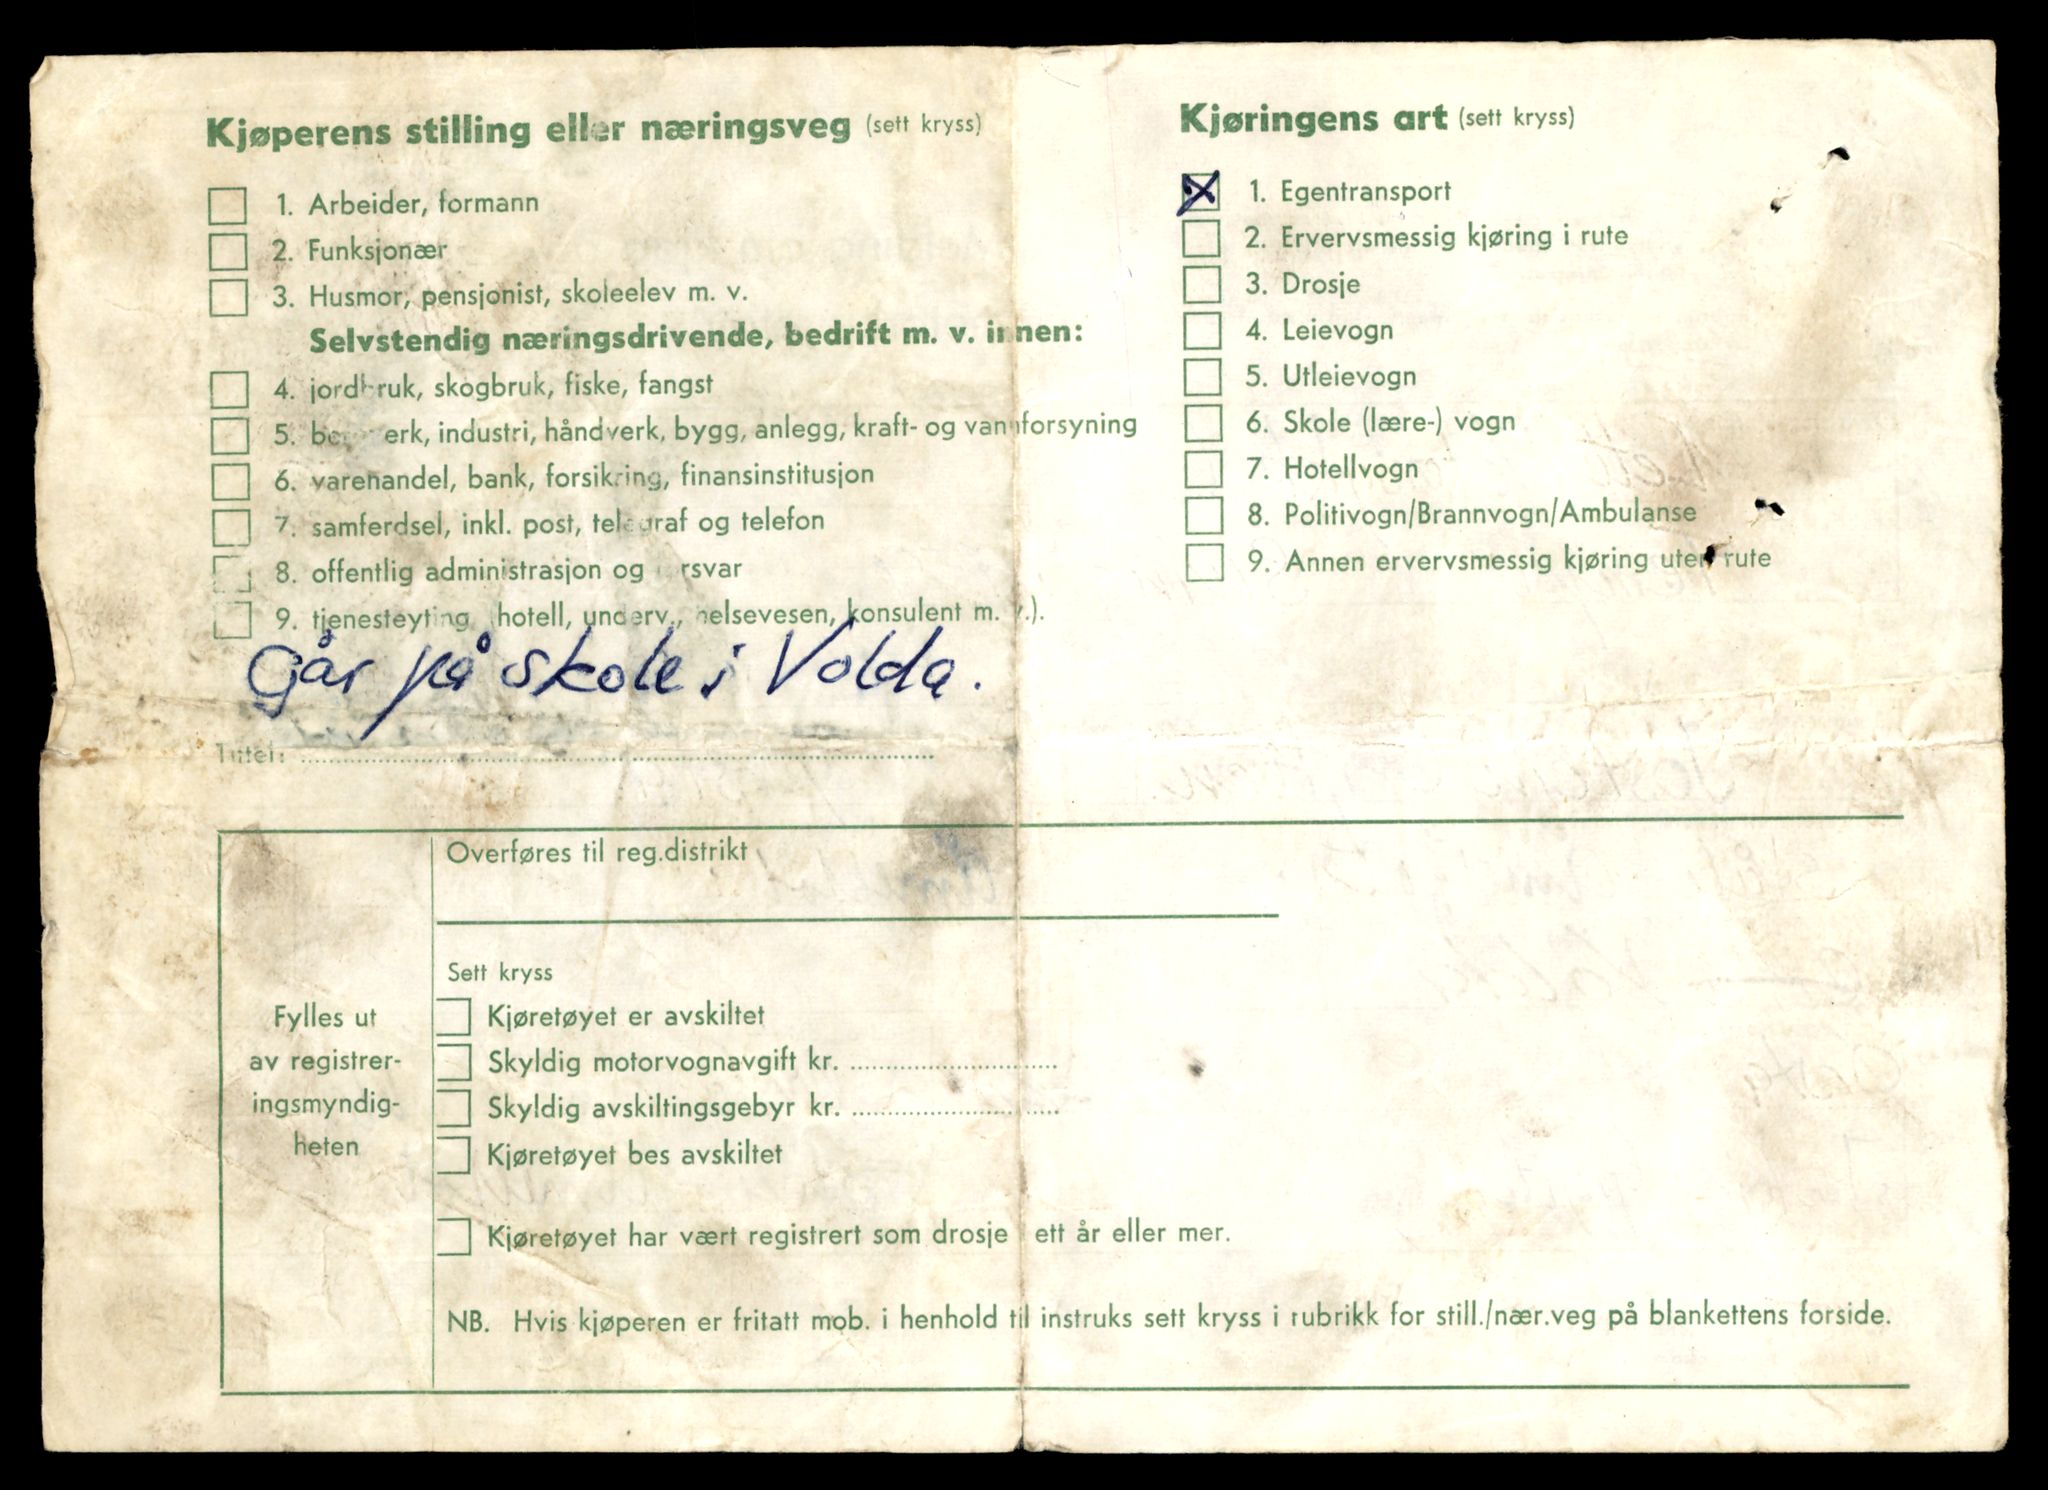 Kjøperens stilling eller næringsveg (sett kryss)
1. Arbeider, formann
2. Funksjonær
3. Husmor, pensjonist, skoleelev m. v.
Selvstendig næringsdrivende, bedrift m. v. innen:
4. jordbruk, skogbruk, fiske, fangst
5. bergverk, industri, håndverk, bygg, anlegg, kraft- og vannforsyning
6. varehandel, bank, forsikring, finansinstitusjon
7. samferdsel, inkl. post, telegraf og telefon
8. offentlig administrasjon og forsvar
9. tjenesteyting (hotell, underv., helsevesen, konsulent m. v.).
Går på skole i Volda.
Tittel:
Kjøringens art (sett kryss)
1. Egentransport
2. Ervervsmessig kjøring i rute
3. Drosje
4. Leievogn
5. Utleievogn
6. Skole (lære-) vogn
7. Hotellvogn
8. Politivogn/Brannvogn/Ambulanse
9. Annen ervervsmessig kjøring uten rute
Fylles ut
av registrer-
ingsmyndig-
heten
Overføres til reg.distrikt
Sett kryss
Kjøretøyet er avskiltet
Skyldig motorvognavgift kr.
Skyldig avskiltingsgebyr kr.
Kjøretøyet bes avskiltet
Kjøretøyet har vært registrert som drosje i ett år eller mer.
NB. Hvis kjøperen er fritatt mob. i henhold til instruks sett kryss i rubrikk for still./nær.veg på blankettens forside.